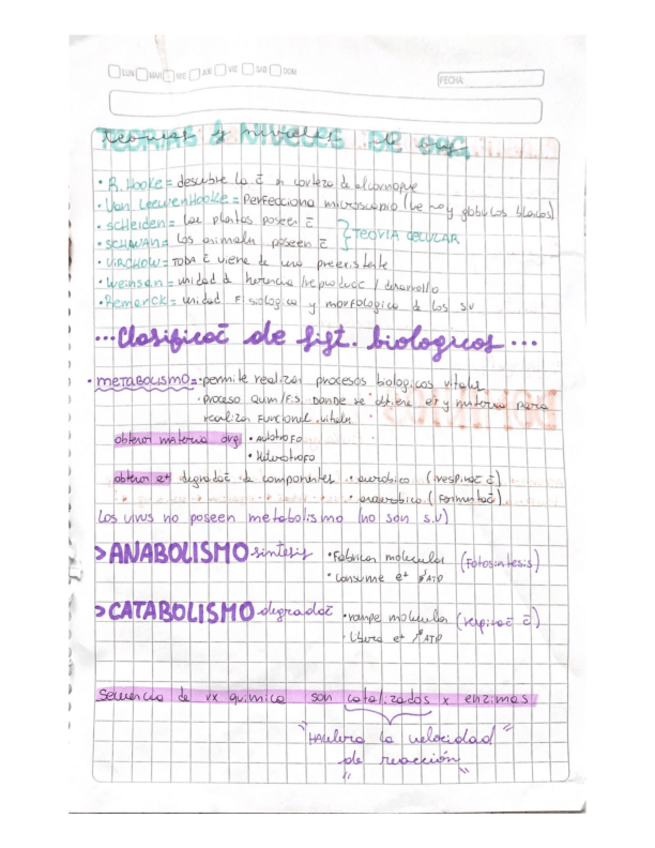 LUN MAR MIE JUE VIE SAB DOM
FECHA:
TEORIAS y NIVELES DE ORG
• R. Hooke = descubre la c̄ en corteza de alcornoque
• Van Leewenhooke = Perfecciona microscopio (ve r~ y globulos blancos)
• Scheiden = Las plantas poseen c̄
• SCHWAN = Los animales poseen c̄
} TEORIA CELULAR
• VIRCHOW = TODA c̄ viene de una preexistente
• Weinsan = unidad d herencia /reproducc / desarrollo
• Remarck = unidad Fisiologica y morfologica d los s.v
...Clasificac̄ de sist. biologicos...
• METABOLISMO = • permite realizar procesos biologicos vitales
• proceso Quim/Fis DONDE se obtiene e+ y materia para
realizar Funciones vitales
obtener materia org • Autotrofo
• Heterotrofo
obtener e+ degradac̄ d componentes • aerobico (respirac̄ c̄)
• anaerobico (Formentac̄)
Los virus no poseen metabolismo (no son s.v)
>ANABOLISMO sintesis • Fabrica moleculas (Fotosintesis)
• consume e+ ATP
>CATABOLISMO degradac̄ • rompe moleculas (respirac̄ c̄)
• Libera e+ ATP
Secuencia de rx quimica son catalizadas x enzimas
"Hacelera la velocidad"
de reacción